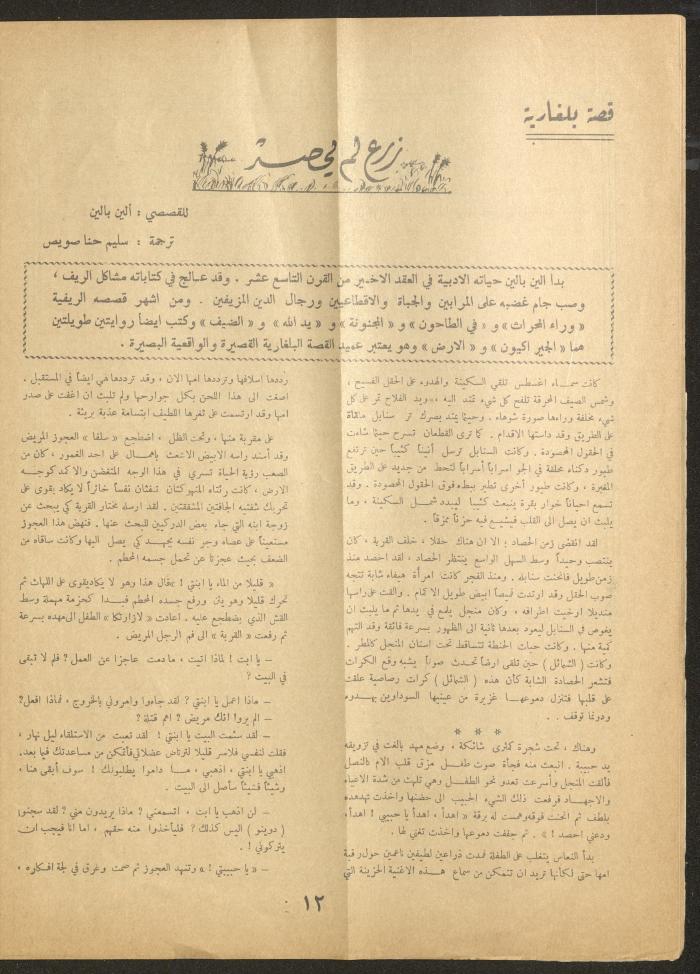 قصة بلغارية
زرع لم يحصد
للقصصي : ألين بالين
ترجمة : سليم حنا صويص
بدأ الين بالين حياته الادبية في العقد الاخير من القرن التاسع عشر . وقد عالج في كتاباته مشاكل الريف ،
وصب جام غضبه على المرابين والجباة والاقطاعيين ورجال الدين المزيفين . ومن اشهر قصصه الريفية
« وراء المحراث » و « في الطاحون » و « المجنونة » و « يد الله » و « الضيف » وكتب ايضاً روايتين طويلتين
هما « الجير اكيون » و « الارض » وهو يعتبر عميد القصة البلغارية القصيرة والواقعية البصيرة .
كانت سماء اغسطس تلقي السكينة والهدوء على الحقل الفسيح ،
وشمس الصيف المحرقة تلفح كل شيء تمتد اليه ، ويد الفلاح تمر على كل
شيء مخلفة وراءها صورة شوهاء . وحيثما يمتد بصرك تر سنابل ملقاة
على الطريق وقد داستها الاقدام . كما ترى القطعان تسرح حيثما شاءت
في الحقول المحصودة . وكانت السنابل ترسل أنيناً كئيباً حين ترتفع
طيور دكناء محلقة في الجو اسراباً أسراباً لتحط من جديد على الطريق
المغبرة ، وكانت طيور أخرى تطير ببطء فوق الحقول المحصودة . وقد
تسمع احياناً خوار بقرة ينبعث كئيبا ليبدد شمل السكينة ، وما
يلبث ان يصل الى القلب فيشيع فيه حزناً ممزقاً .
لقد انقضى زمن الحصاد ؛ الا ان هناك حقلا ، خلف القرية ، كان
ينتصب وحيداً وسط السهل الواسع ينتظر الحصاد ، لقد احصد منذ
زمن طويل فانحنت سنابله . ومنذ الفجر كانت امرأة هيفاء شابة تتجه
صوب الحقل وقد ارتدت قميصاً ابيض طويل الاكمام . والقت على راسها
منديلا ارخيت اطرافه ، وكان منجل يلمع في يدها ثم ما يلبث ان
يغوص في السنابل ليعود بعدها ثانية الى الظهور بسرعة فائقة وقد التهم
كمية منها . وكانت حبات الحنطة تتساقط تحت اسنان المنجل كالمطر .
وكانت ( الشمائل ) حين تلقى ارضاً تحدث صوتاً يشبه وقع الكرات
فتشعر الحصادة الشابة كأن هذه ( الشمائل ) كرات رصاصية علقت
على قلبها فتنزل دموعها غزيرة من عينيها السوداوين بهدوء
ودونما توقف . .
* * *
وهناك ، تحت شجرة كمثرى شائكة ، وضع مهد بالغت في تزويقه
يد حبيبة . انبعث منه فجأة صوت طفل مزق قلب الام بالنصل
فألقت المنجل وأسرعت تعدو نحو الطفل وهي تلهث من شدة الاعياء
والاجهاد فرفعت ذلك الشيء الحبيب الى حضنها واخذت تهدهده
بلطف ثم انحنت فوقه وهمست له برقة « اهدأ ، اهدأ يا حبيبي ! اهدأ ،
ودعني احصد ! » . ثم جففت دموعها واخذت تغني لها .
بدأ النعاس يتغلب على الطفلة فمدت ذراعين لطيفين ناعمين حول رقبة
امها حتى لكأنها تريد ان تتمكن من سماع هذه الاغنية الحزينة التي
رددها اسلافها وترددها امها الان ، وقد ترددها هي ايضاً في المستقبل .
اصغت الى هذا اللحن بكل جوارحها ولم تلبث ان اغفت على صدر
امها وقد ارتسمت على ثغرها اللطيف ابتسامة عذبة بريئة .
على مقربة منها ، وتحت الظل ، اضطجع « سلفا » العجوز المريض
وقد أسند راسه الابيض الاشعث بإهمال على احد الغمور ، كان من
الصعب رؤية الحياة تسري في هذا الوجه المتغضن والاكد كوجه
الارض ، كانت رئتاه المنهوكتان تنفثان نفساً خائراً لا يكاد يقوى على
تحريك شفتيه الجافتين المشققتين . لقد ارسله مختار القرية كي يبحث عن
زوجة ابنه التي جاء بعض الدركيين للبحث عنها . فنهض هذا العجوز
مستعيناً على عصاه وجر نفسه بجهد كي يصل اليها وكانت ساقاه من
الضعف بحيث عجزتا عن تحمل جسمه المحطم .
« قليلا من الماء يا ابنتي ! » قال هذا وهو لا يكاد يقوى على اللهاث ثم
تحرك قليلا وهو يئن ورفع جسده المحطم فبدا كحزمة مهملة وسط
القش الذي يضطجع عليه . اعادت « لازاوتكا » الطفل الى مهده بسرعة
ثم رفعت « القربة » الى فم الرجل المريض .
– يا ابت ! لماذا اتيت ، ما دمت عاجزا عن العمل ؟ فلم لا تبقى
في البيت ؟
– ماذا اعمل يا ابنتي ! لقد جاءوا وامروني بالخروج ، فماذا افعل ؟
– الم يروا انك مريض ؟ اهم قتلة ؟
– لقد سئمت البيت يا ابنتي ! لقد تعبت من الاستلقاء ليل نهار ،
فقلت لنفسي فلاسر قليلا لترتاض عضلاتي فأتمكن من مساعدتك فيما بعد .
اذهبي يا ابنتي ، اذهبي ، ما داموا يطلبونك ! سوف أبقى هنا ،
وشيئاً فشيئاً سأصل الى البيت .
– لن اذهب يا ابت ، اتسمعني ؟ ماذا يريدون مني ؟ لقد سجنوا
( دوينو ) اليس كذلك ؟ فليأخذوا منه حقهم ، اما انا فيجب ان
يتركوني ! .
– « يا حبيبتي ! » وتنهد العجوز ثم صمت وغرق في لجة افكاره ،
١٢